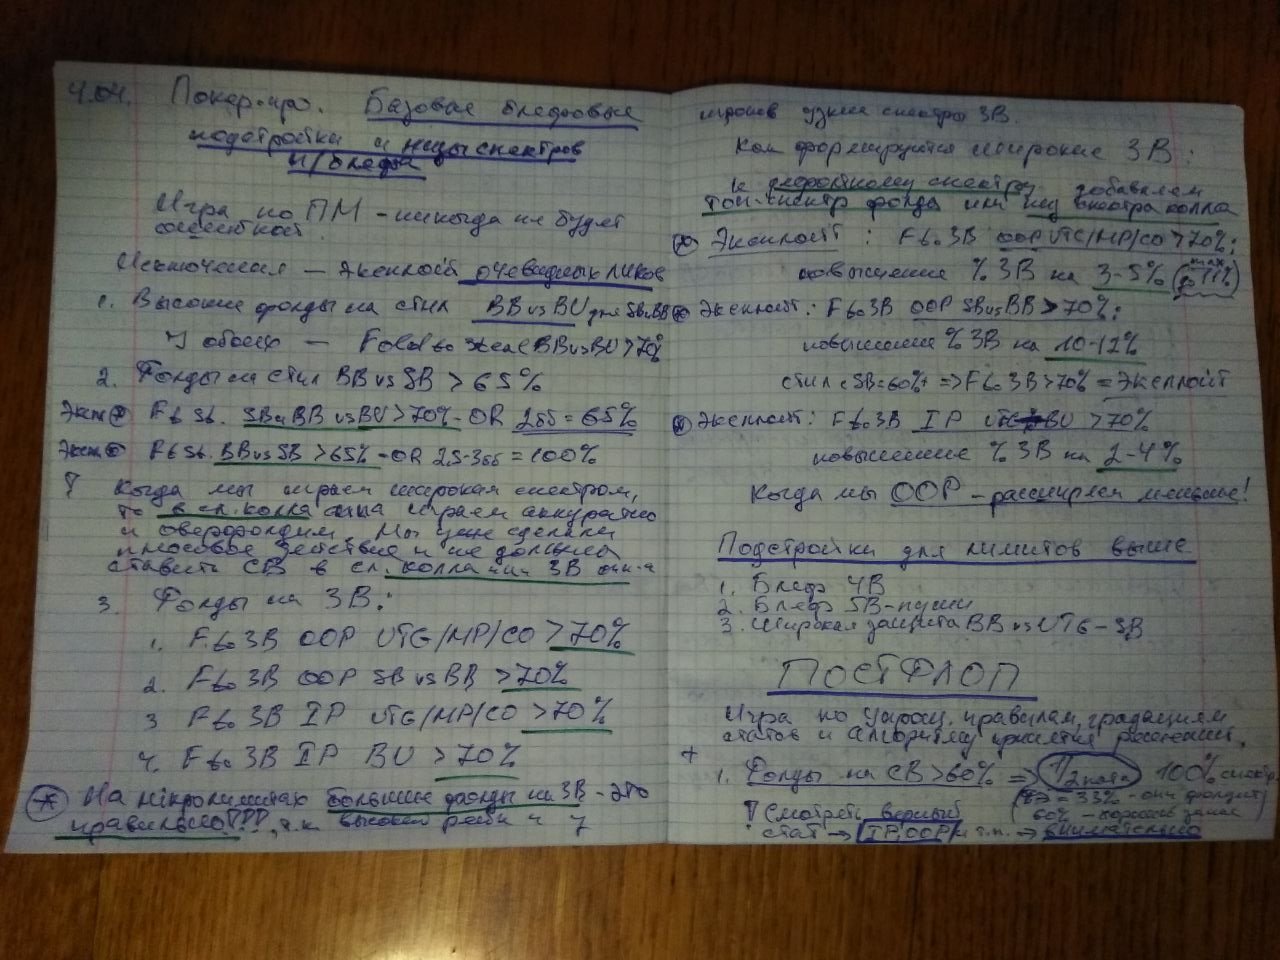 4.04. Покер-про. Базовые блефовые
подстройки и низы спектров
п/блефы
Игра по ПМ - никогда не будет
Исключения - эксплойт очевидных ликов
1. Высокие фолды на стил BB vs BU для SB и BB
У обоих - Fold to steal BB vs BU >70%
2. Фолды на стил BB vs SB > 65%
Экспл. F to St. SB и BB vs BU >70% - OR 2бб = 65%
Экспл. F to St. BB vs SB >65% - OR 2.5-3бб = 100%
Когда мы играем широким спектром,
то в сл. колла оп-а играем аккуратно
и оверфолдим. Мы уже сделали
плюсовое действие и не должны
ставить CB в сл. колла или 3B оп-а
3. Фолды на 3B:
1. F to 3B OOP UTG/MP/CO >70%
2. F to 3B OOP SB vs BB >70%
3. F to 3B IP UTG/MP/CO >70%
4. F to 3B IP BU >70%
На микролимитах большие фолды на 3B - это
правильно!!!, т.к. высокий рейк и 7
против узких спектров 3B.
Как формируются широкие 3B:
К дефолтному спектру добавляем
топ-спектр фолда или низ спектра колла
Эксплойт: F to 3B OOP UTG/MP/CO >70%:
повышение % 3B на 3-5% (max до 11%)
Эксплойт: F to 3B OOP SB vs BB >70%:
повышение % 3B на 10-12%
стил с SB=60%+ => F to 3B >70% = Эксплойт
Эксплойт: F to 3B IP BU >70%
повышение % 3B на 2-4%
Когда мы OOP - расширяем меньше!
Подстройки для лимитов выше
1. Блеф 4B
2. Блеф 5B-пуши
3. Широкая защита BB vs UTG-SB
ПОСТФЛОП
Игра по правилам, градациям
статов и алгоритму принятия решений.
+
1. Фолды на CB >60% => 1/2 пота 100% спектр
(БЭ = 33% - они фолдят
60% - хороший запас)
! Смотреть верный
стат -> IP, OOP и т.п. -> внимательно